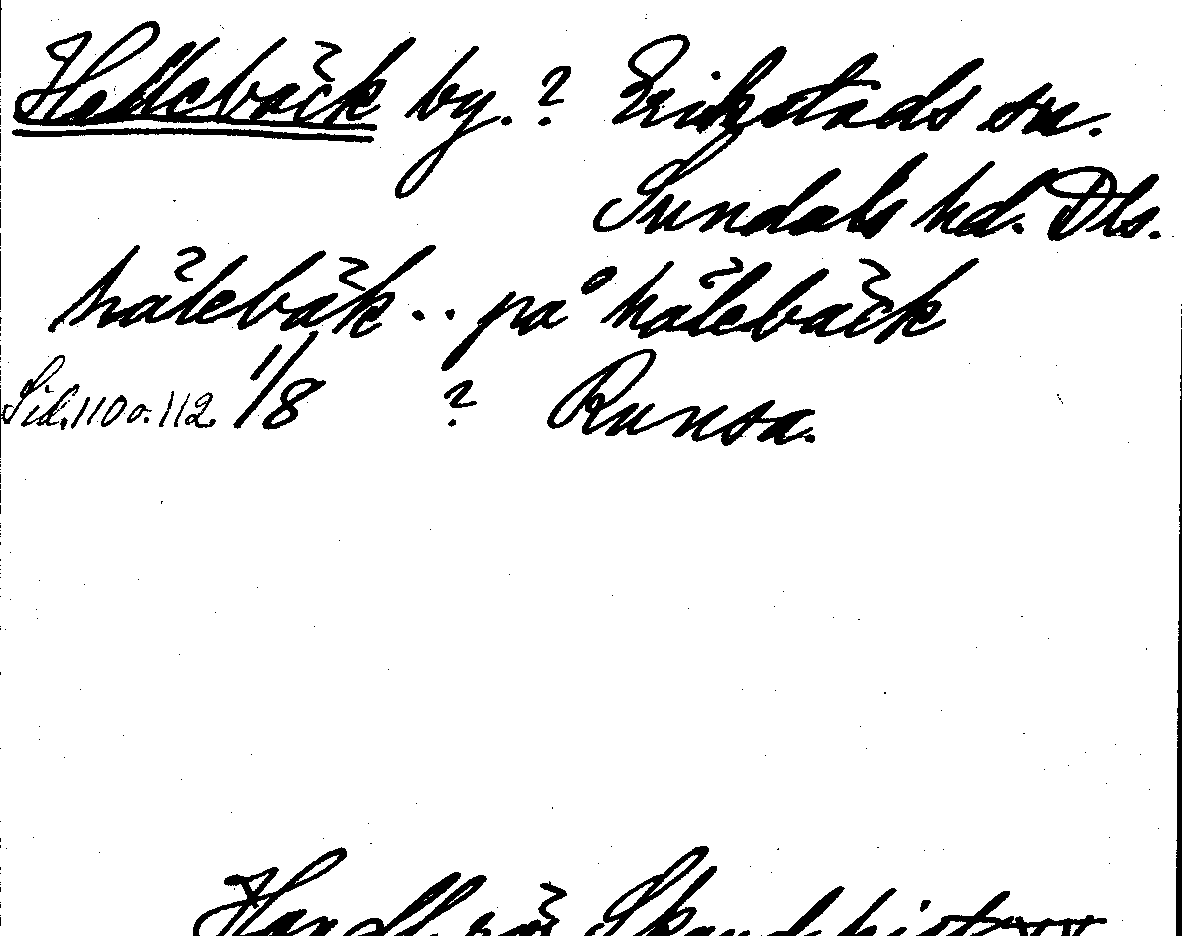 Hellebäck by.? Erikstads sn.
Sundals hd. Dls.
hälebäk .. på hälebäck
Sid. 110 o. 112. 1/8 ? Runsa.
Handl. rör Skand. hist.